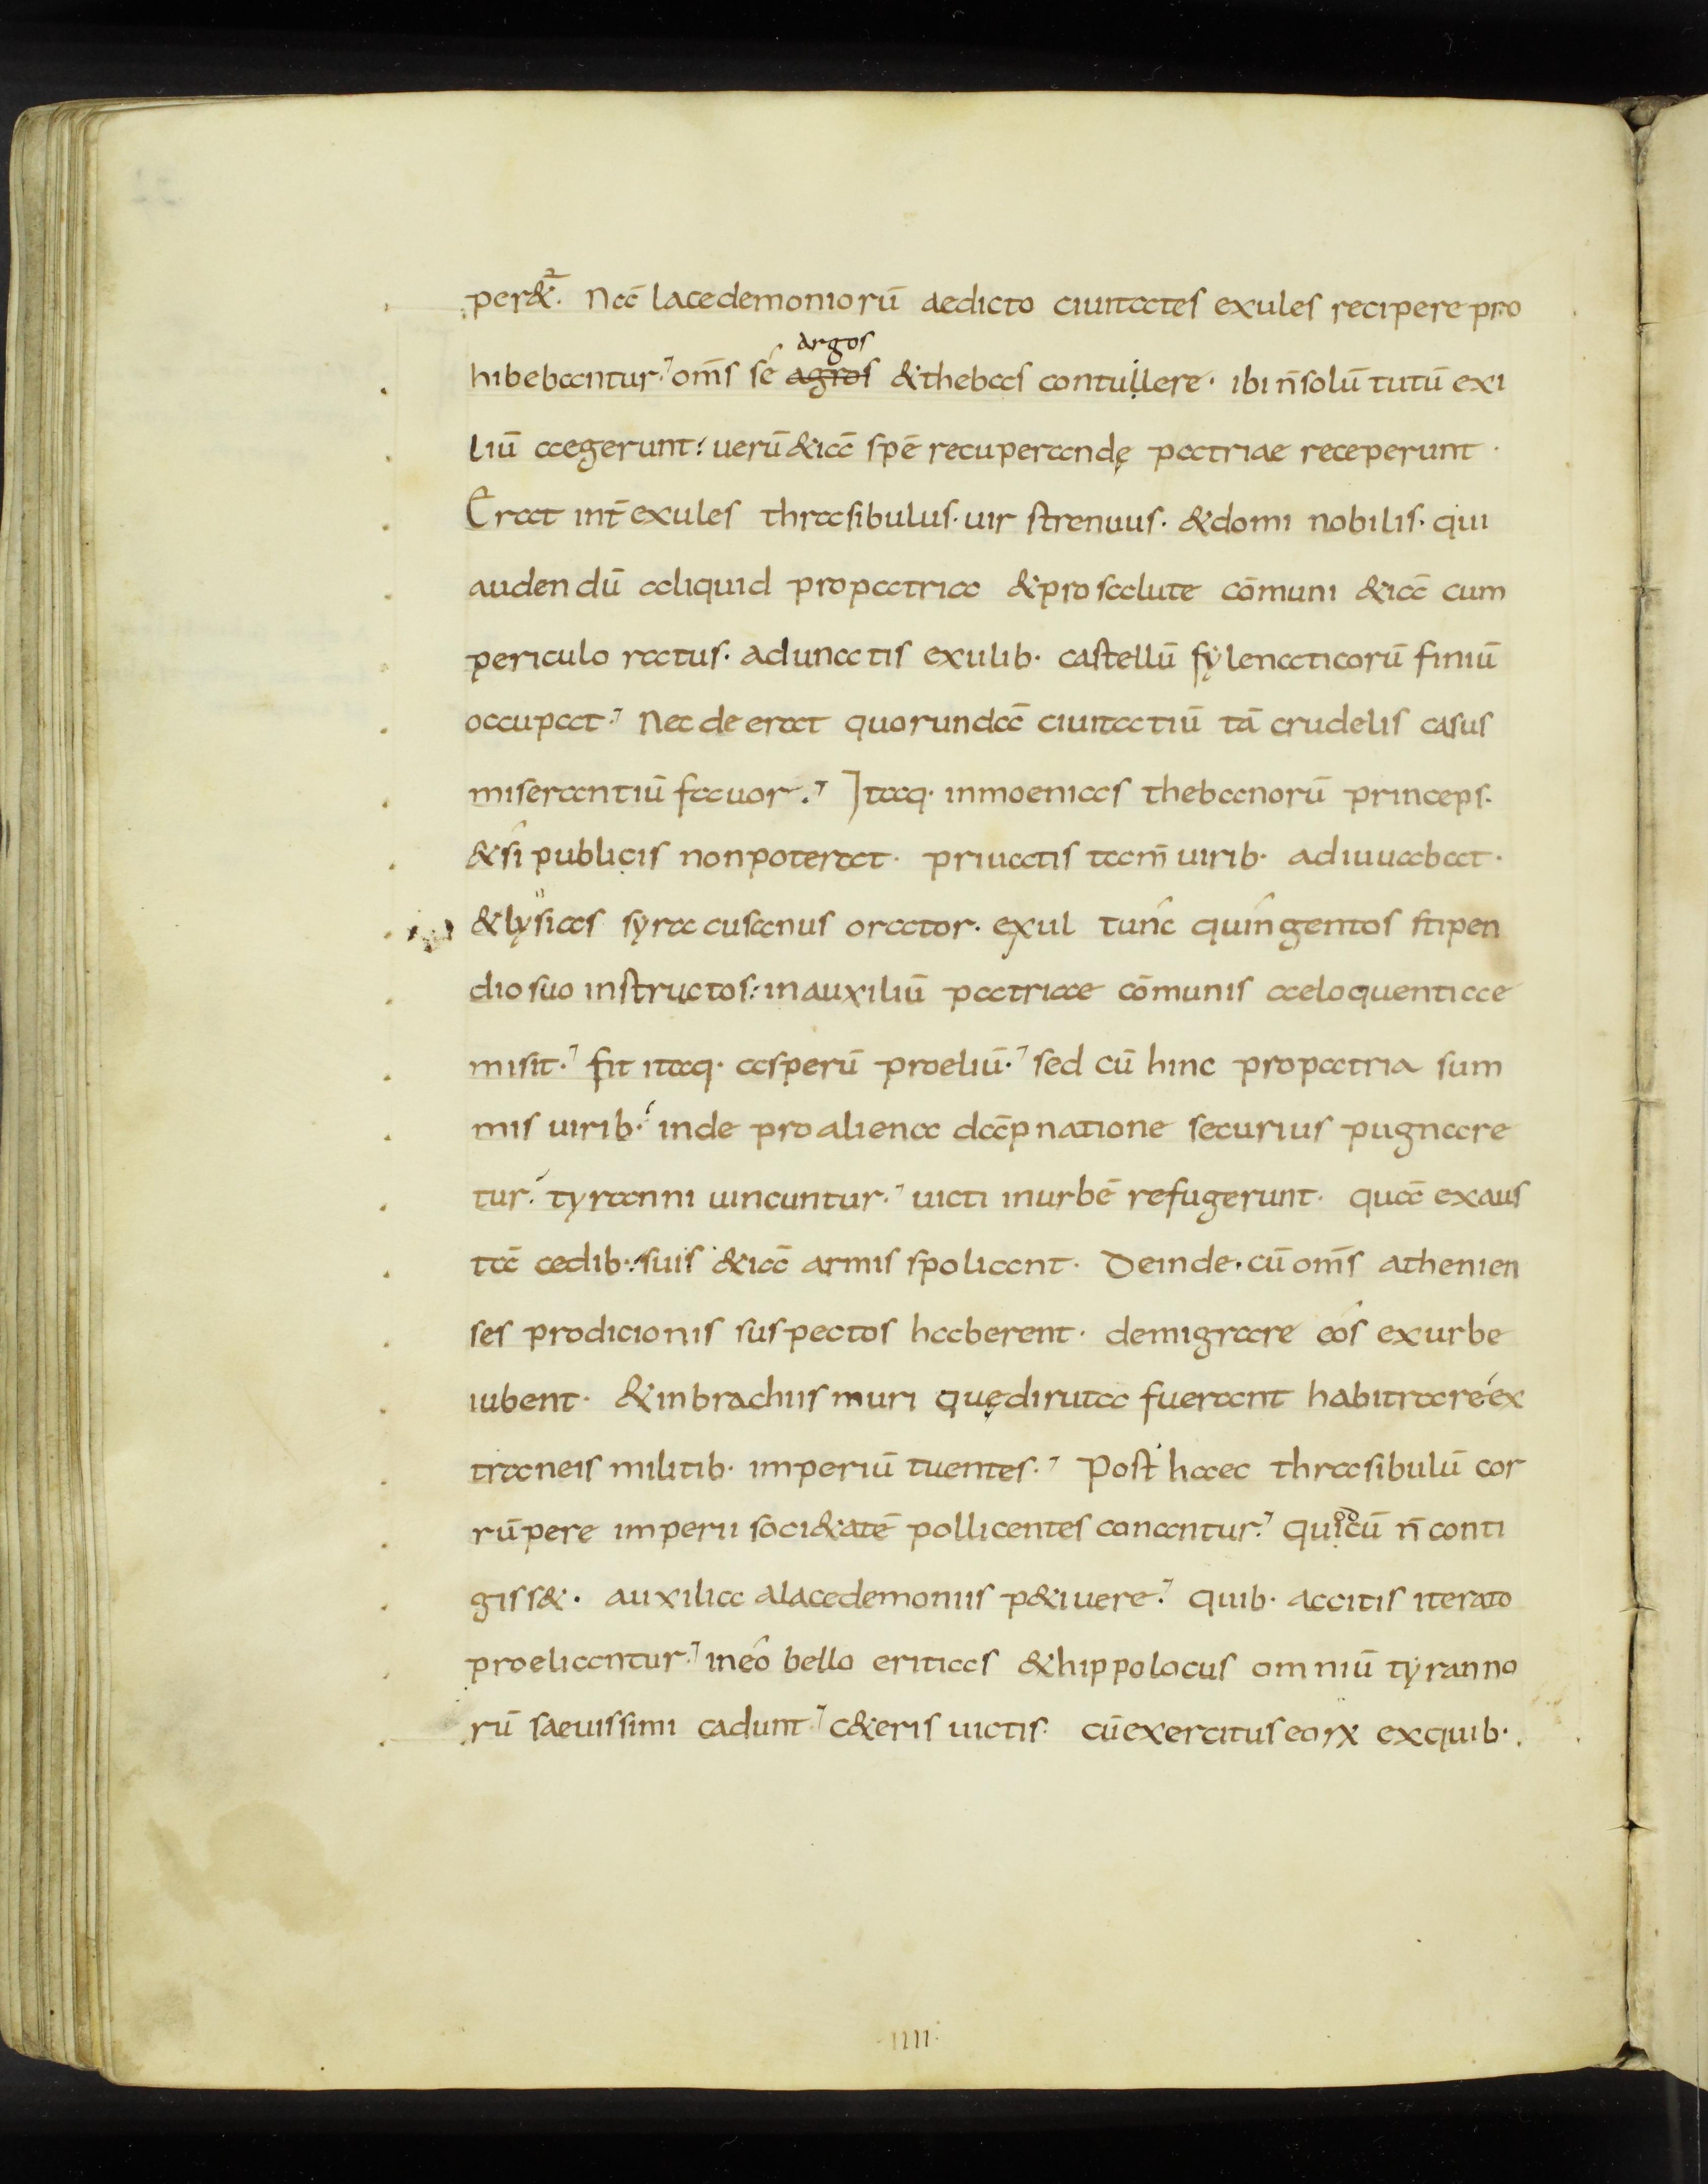 per&ur̄. Nā lacedemoniorū aedicto ciuitates exules recipere pro
hibebantur. om̄s se agros &thebas contullere. ibi n̄solū tutū exi
argos
liū aegerunt: uerū &iā spē recuperandę patriae receperunt.
Erat int̄ exules thrasibulus. uir strenuus. &domi nobilis. qui
audendū aliquid propatria &pro salute cōmuni &iā cum
periculo ratus. adunatis exulib. castellū fẏlenaticorū finiū
occupat. Nec deerat quorundā ciuitatiū tā crudelis casus
miserantiū fauor. Itaq. inmoenias thebanorū princeps.
&si publicis nonpoterat. priuatis tam̄ uirib. adiuuabat.
&lysias sẏracusanus orator. exul tunc quingentos stipen
diosuo instructos: inauxiliū patriae cōmunis aeloquentiae
misit. fit itaq. asperū proeliū. sed cū hinc propatria sum
mis uirib. inde proaliena dāpnatione securius pugnare
tur. tyranni uincuntur. uicti inurbē refugerunt. quā exaus
tā cedib. suis &iā armis spoliant. Deinde. cū om̄s athenien
ses prodicionis suspectos haberent. demigrare eos exurbe
iubent. &inbrachiis muri quędiruta fuerant habitrare ex
traneis militib. imperiū tuentes. Post haec thrasibulū cor
rūpere imperii soci&atē pollicentes conantur. quicū n̄ conti
od
giss&. auxilia alacedemoniis p&iuere. quib. accitis iterato
proeliantur. ineo bello eritias &hippolocus omniū tẏranno
rū saeuissimi cadunt. c&eris uictis. cū exercitus eoꝝ exquib.
.IIII.